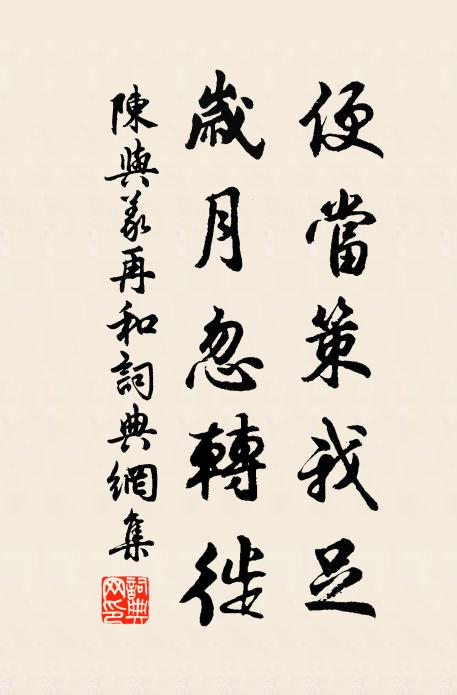 便當策我足
歲月忽轉徙
陳與義再和詞典網集
詞典網印